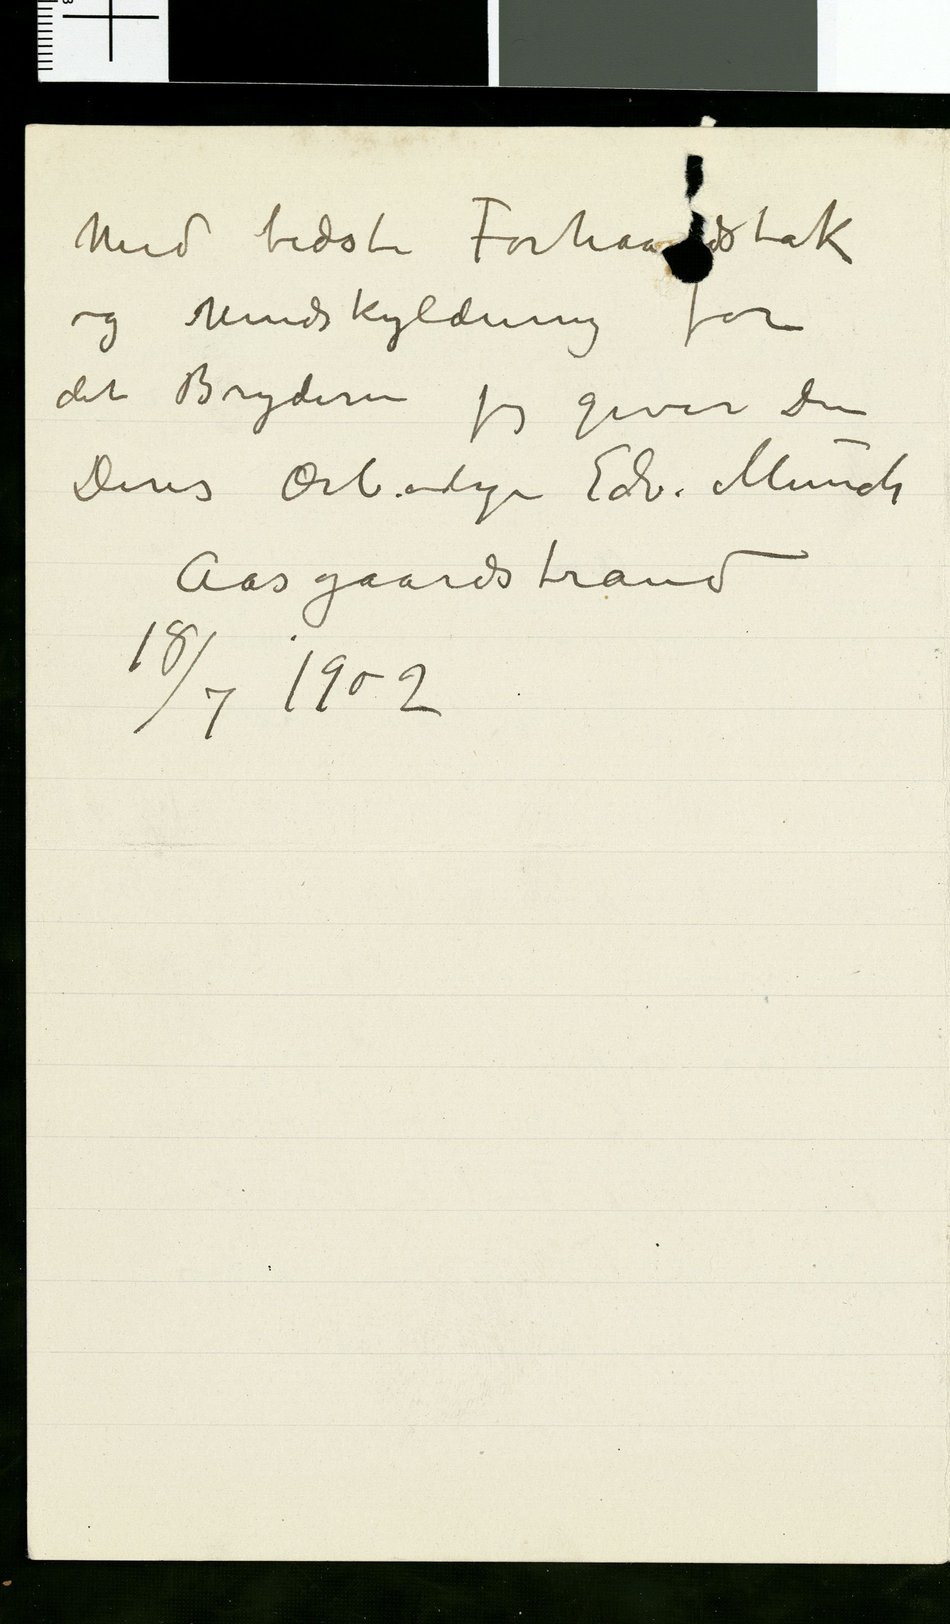 Med bedste Forhaandstak
og Undskyldning for
det Bryderi jeg giver Dem
Deres Ærbødige Edv. Munch
Aasgaardstrand
18/7 1902